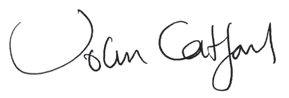 John Catford